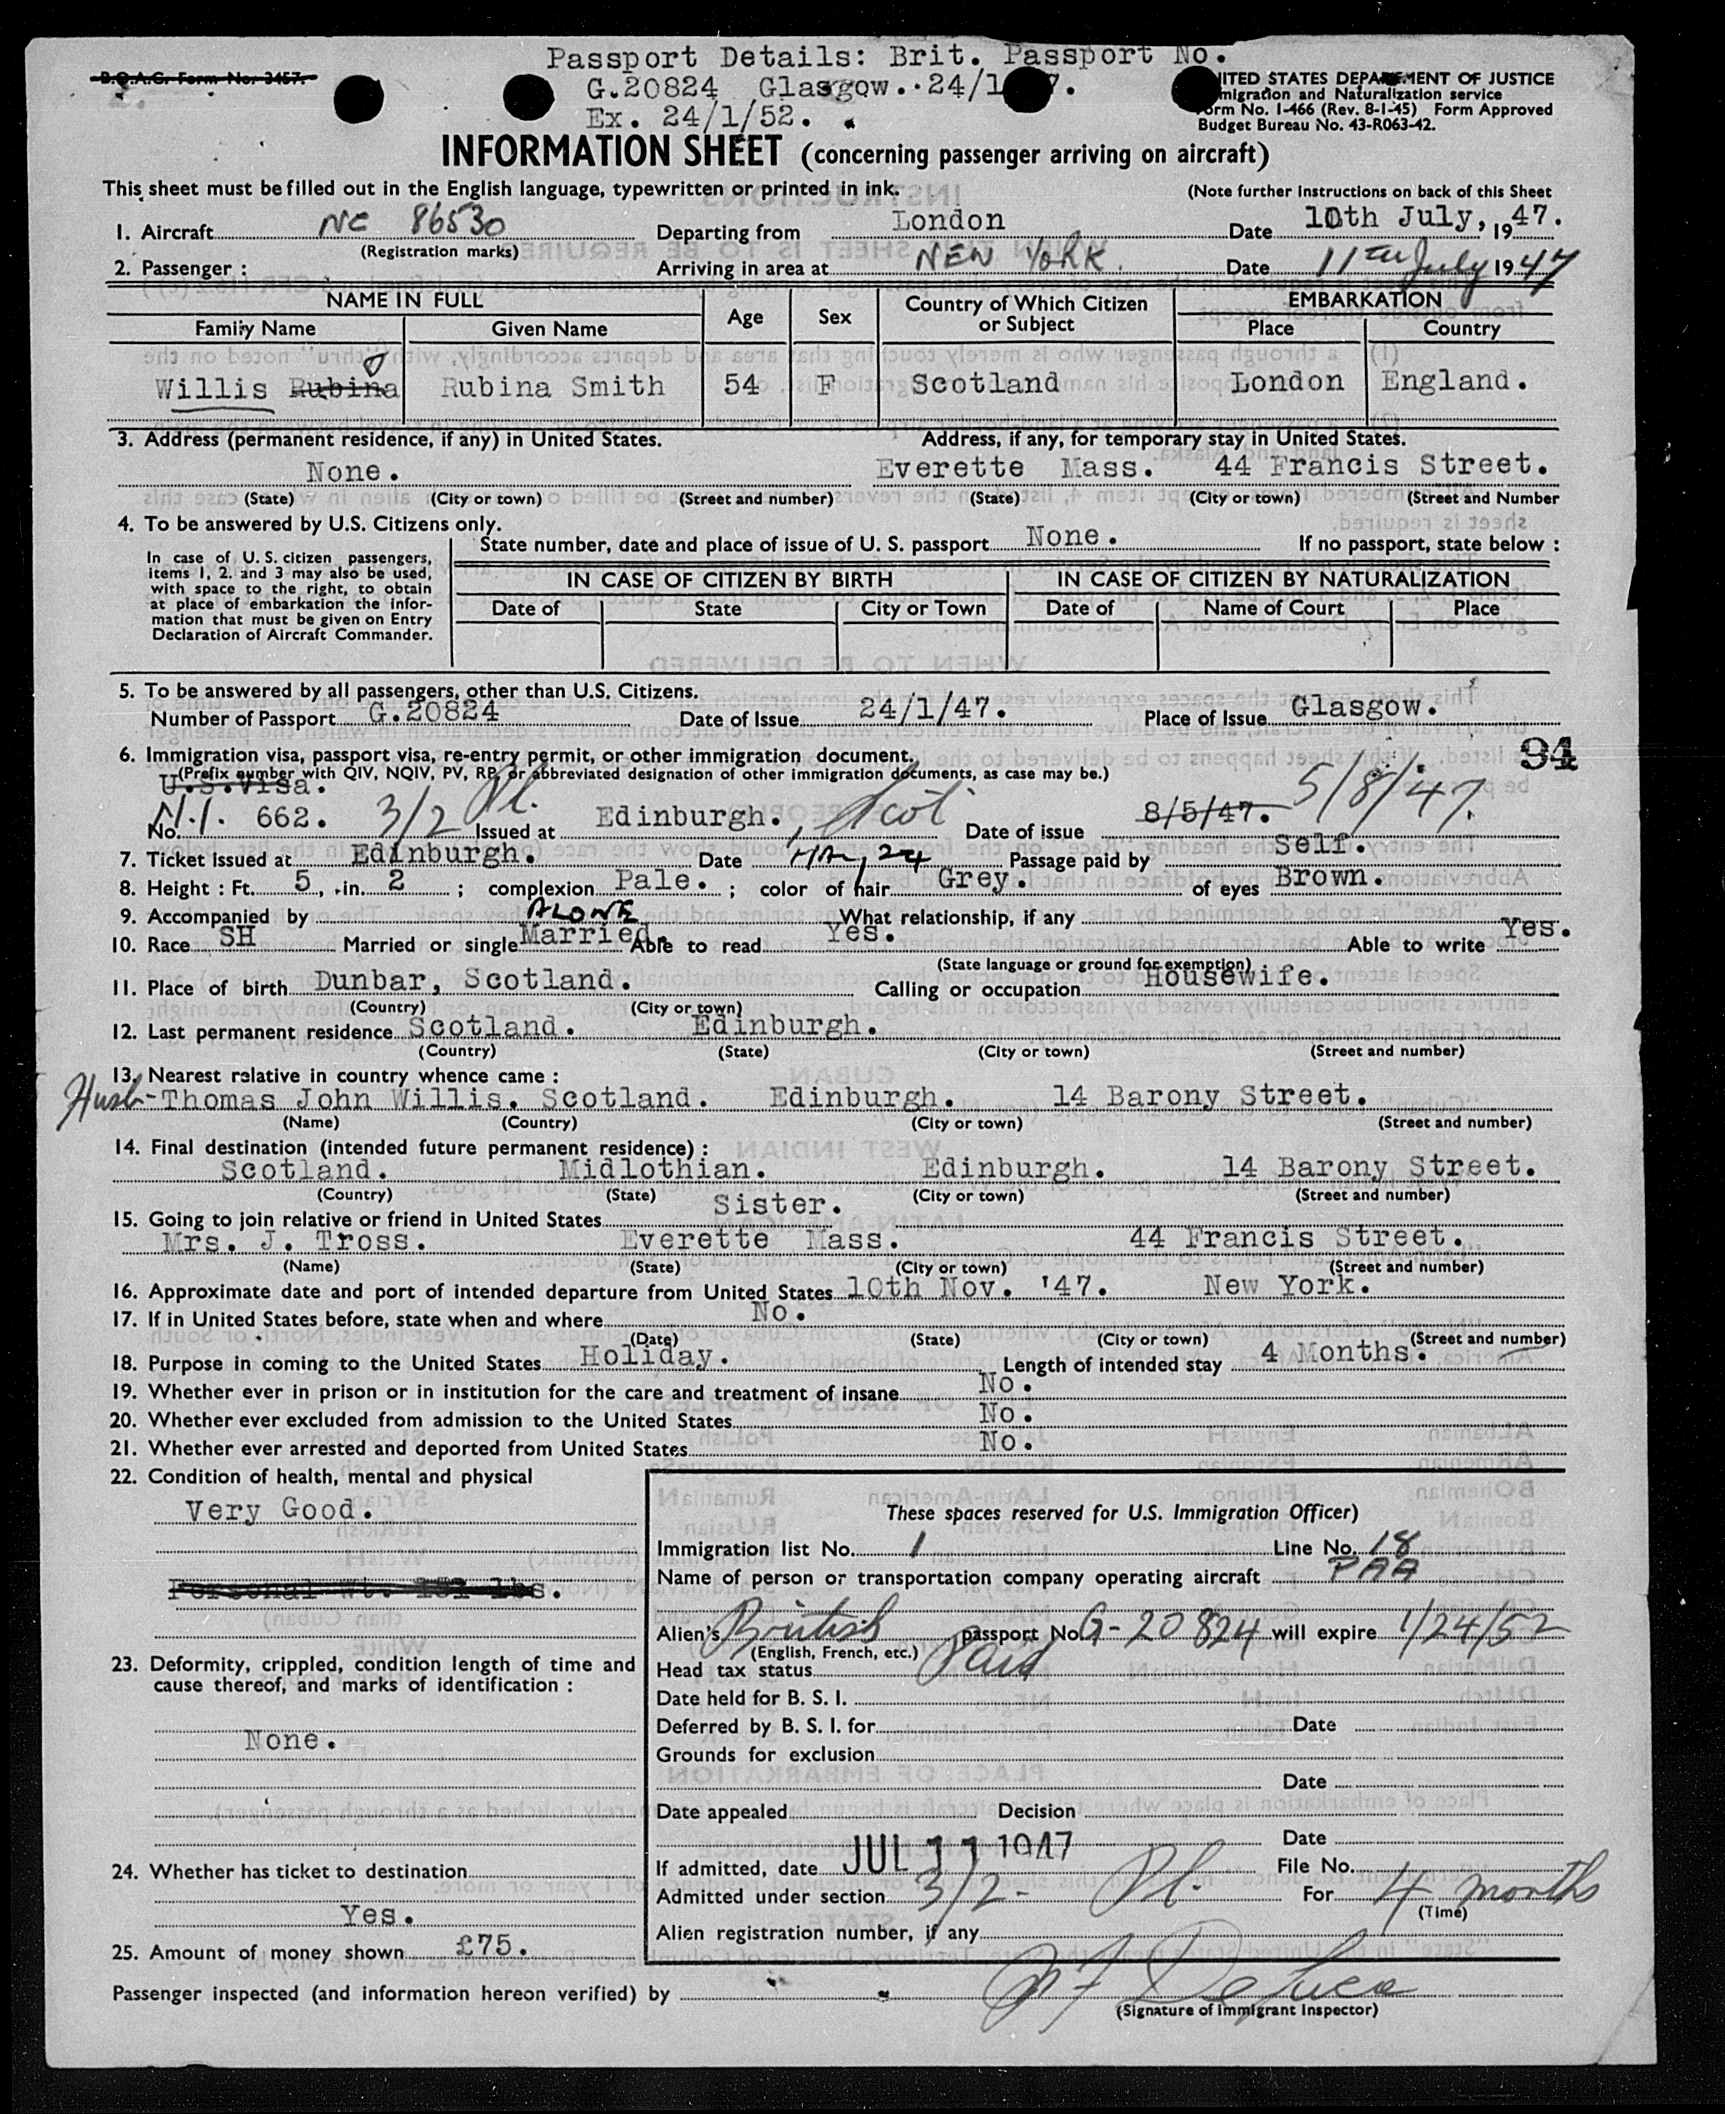 Passport Details: Brit. Passport No.
B.O.A.C. Form No. 3457.
G.20824 Glasgow..24/1 7.
Ex. 24/1/52.
ITED STATES DEPARTMENT OF JUSTICE
migration and Naturalization service
orm No. I-466 (Rev. 8-1-45) Form Approved
Budget Bureau No. 43-R063-42.
INFORMATION SHEET (concerning passenger arriving on aircraft)
This sheet must be filled out in the English language, typewritten or printed in ink.
(Note further instructions on back of this Sheet
1. Aircraft NC 86530 Departing from London Date 10th July, 1947.
(Registration marks)
2. Passenger : Arriving in area at NEW YORK. Date 11TH July 1947
NAME IN FULL Age Sex Country of Which Citizen or Subject EMBARKATION
Family Name Given Name Place Country
Willis Rubina Rubina Smith 54 F Scotland London England.
3. Address (permanent residence, if any) in United States. Address, if any, for temporary stay in United States.
None. Everette Mass. 44 Francis Street.
(State) (City or town) (Street and number) (State) (City or town) (Street and Number
4. To be answered by U.S. Citizens only.
State number, date and place of issue of U. S. passport None. If no passport, state below :
In case of U. S. citizen passengers,
items 1, 2. and 3 may also be used,
with space to the right, to obtain
at place of embarkation the infor-
mation that must be given on Entry
Declaration of Aircraft Commander.
IN CASE OF CITIZEN BY BIRTH IN CASE OF CITIZEN BY NATURALIZATION
Date of State City or Town Date of Name of Court Place
5. To be answered by all passengers, other than U.S. Citizens.
Number of Passport G.20824 Date of Issue 24/1/47. Place of Issue Glasgow.
6. Immigration visa, passport visa, re-entry permit, or other immigration document.
94
(Prefix number with QIV, NQIV, PV, RP, or abbreviated designation of other immigration documents, as case may be.)
U.S.Visa.
N.I.
No. 662. 3/2 Pl. Issued at Edinburgh., Scot Date of issue 8/5/47. 5/8/47.
7. Ticket issued at Edinburgh. Date MAY, 24 Passage paid by Self.
8. Height : Ft. 5, in. 2 ; complexion Pale. ; color of hair Grey. of eyes Brown.
9. Accompanied by ALONE What relationship, if any
10. Race SH Married or single Married. Able to read Yes. Able to write Yes.
(State language or ground for exemption)
11. Place of birth Dunbar, Scotland. Calling or occupation Housewife.
(Country) (City or town)
12. Last permanent residence Scotland. Edinburgh.
(Country) (State) (City or town) (Street and number)
13. Nearest relative in country whence came :
Husb- Thomas John Willis. Scotland. Edinburgh. 14 Barony Street.
(Name) (Country) (City or town) (Street and number)
14. Final destination (intended future permanent residence) :
Scotland. Midlothian. Edinburgh. 14 Barony Street.
(Country) (State) (City or town) (Street and number)
15. Going to join relative or friend in United States Sister.
Mrs. J. Tross. Everette Mass. 44 Francis Street.
(Name) (State) (City or town) (Street and number)
16. Approximate date and port of intended departure from United States 10th Nov. '47. New York.
17. If in United States before, state when and where No.
(Date) (State) (City or town) (Street and number)
18. Purpose in coming to the United States Holiday. Length of intended stay 4 Months.
19. Whether ever in prison or in institution for the care and treatment of insane No.
20. Whether ever excluded from admission to the United States No.
21. Whether ever arrested and deported from United States No.
22. Condition of health, mental and physical
Very Good.
Personal Wt. 131 lbs.
23. Deformity, crippled, condition length of time and
cause thereof, and marks of identification :
None.
24. Whether has ticket to destination
Yes.
25. Amount of money shown £75.
These spaces reserved for U.S. Immigration Officer)
Immigration list No. 1 Line No. 18
Name of person or transportation company operating aircraft PAA
Alien's British passport No. G-20824 will expire 1/24/52
(English, French, etc.)
Head tax status Paid
Date held for B. S. I.
Deferred by B. S. I. for Date
Grounds for exclusion
Date
Date appealed Decision
Date
If admitted, date JUL 11 1947 File No.
Admitted under section 3/2- Pl. For 4 months
(Time)
Alien registration number, if any
Passenger inspected (and information hereon verified) by
(Signature of Immigrant Inspector)